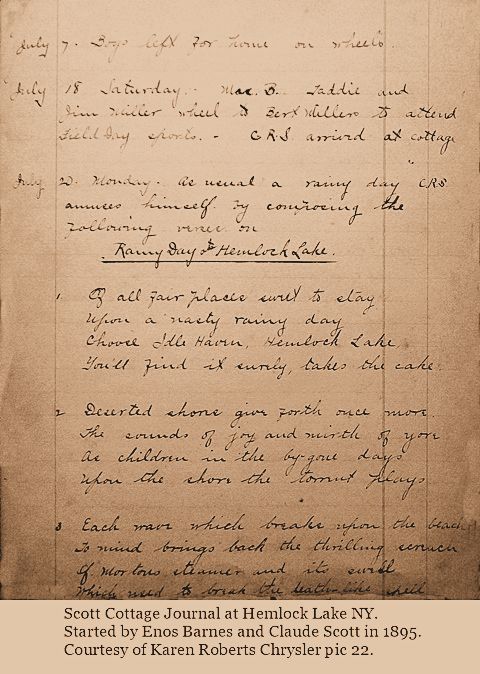 July 7. Boys left for home on wheels.
July 18 Saturday. - Mac. B. Taddie and
Jim Miller wheel to Bert Millers to attend
Field Day sports. - CRS arrived at cottage
July 20 Monday. As usual a rainy day "CRS
amuses himself by composing the
following verses on
Rainy Day at Hemlock Lake.
1 Of all fair places sweet to stay
Upon a nasty rainy day
Choose Idle Haven, Hemlock Lake,
You'll find it surely, takes the cake.
2 Deserted shores give forth once more
The sounds of joy and mirth of yore
As children in the by-gone days
Upon the shore the torrent plays
3 Each wave which breaks upon the beach
To mind brings back the thrilling screech
Of Mortons steamer and its swell
Which used to break the death-like spell
Scott Cottage Journal at Hemlock Lake NY.
Started by Enos Barnes and Claude Scott in 1895.
Courtesy of Karen Roberts Chrysler pic 22.